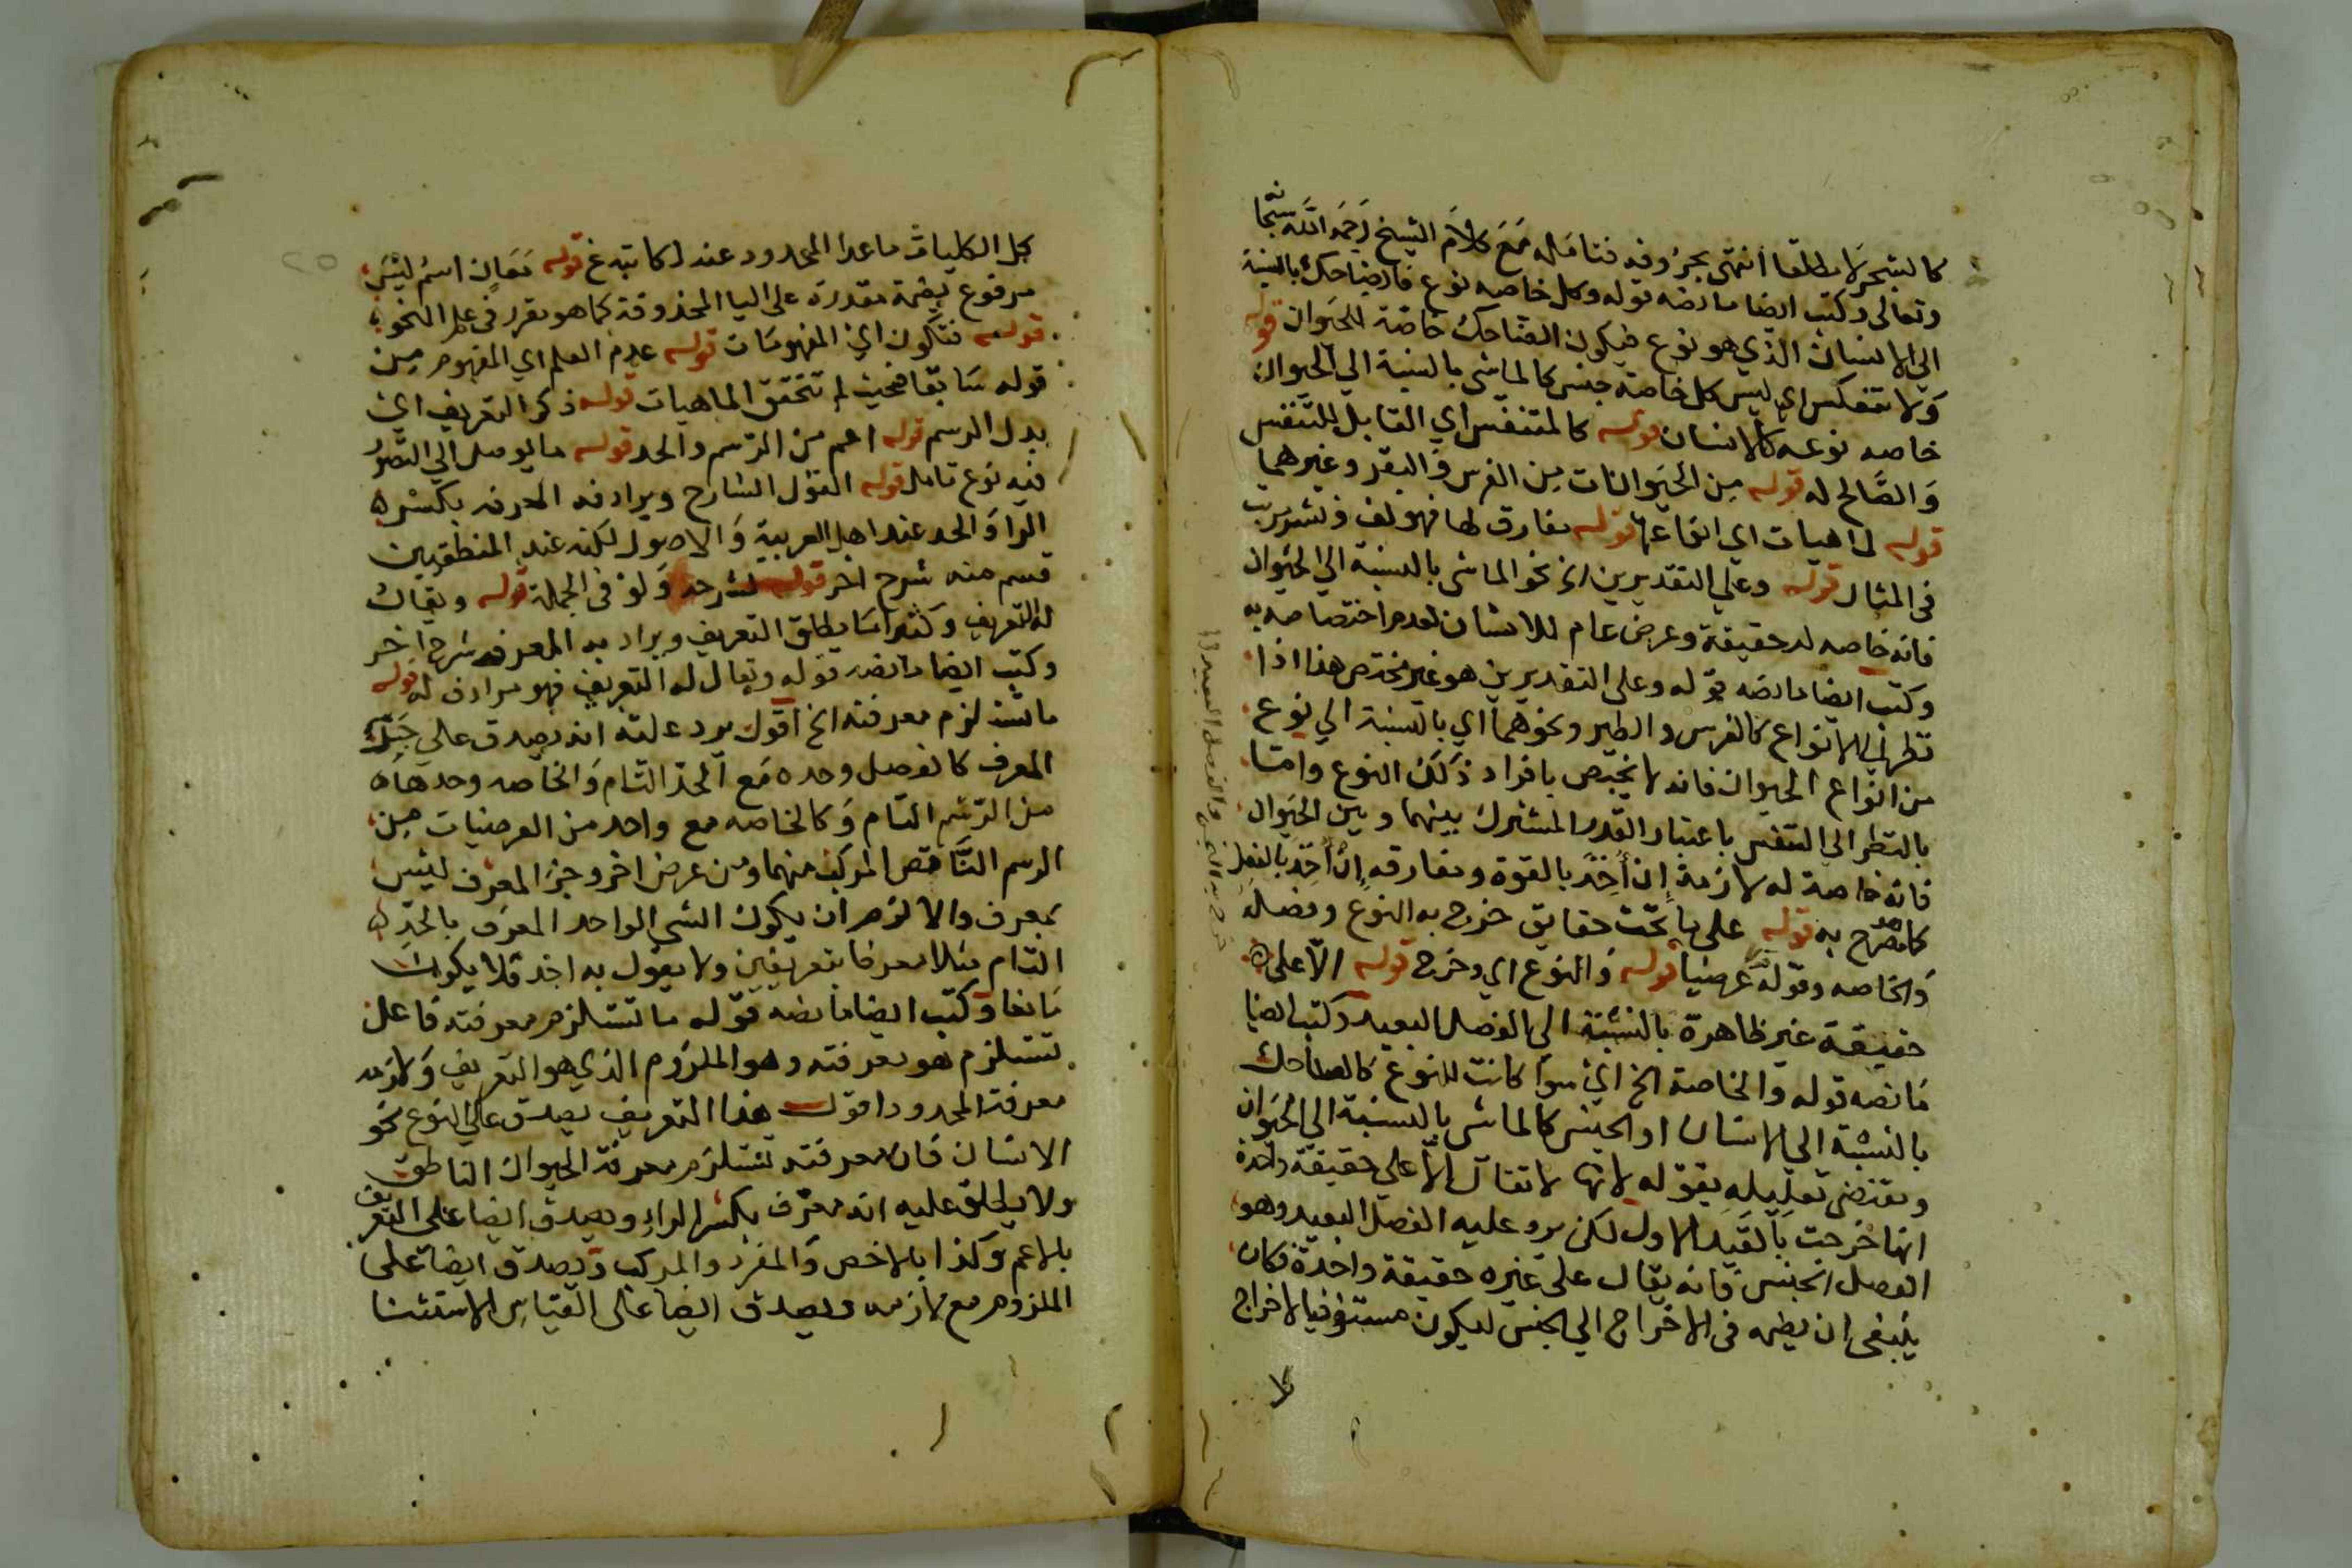 كالشجر لا مطلقا انتهى بحروفه فتامله مع كلام الشيخ رحمه الله سبحانه
وتعالى وكتب ايضا ما نصه قوله وكل خاصه نوع فالضاحك بالنسبة
الي الانسان الذي هو نوع فيكون الضاحك خاصة للحيوان قوله
ولا تنعكس اي ليس كل خاصة جنس كالماشي بالنسبة الي الحيوان
خاصه نوعه كالانسان قوله كالمتنفس اي القابل للتنفس
والصالح له قوله من الحيوانات من الفرس والبقر وغيرهما
قوله لماهيات اي انواعها قوله مفارق لها فهو لف ونشر مرتب
في المثال قوله وعلي التقديرين اي نحو الماشي بالنسبة الي الحيوان
فانه خاصه له حقيقة وعرض عام للانسان لعدم اختصاصه به
وكتب ايضا ما نصه قوله وعلى التقديرين هو غير مختص هذا اذا
نظر الي الانواع كالفرس والطير ونحوهما اي بالنسبة الي نوع
من انواع الحيوان فانه لا يختص بافراد ذلك النوع واما
بالنظر الي التنفس باعتبار القدر المشترك بينهما وبين الحيوان
فانه خاصة له لازمة ان اُخِذ بالقوة ومفارقه اِن اُخذ بالفعل
كما صرح به قوله على ما تحت حقايق خرج به النوع وفصله
والخاصه وقوله عرضيا قوله والنوع اي وخرج قوله الا على
حقيقة غير ظاهرة بالنسبة الي الفصل البعيد وكتب ايضا
ما نصه قوله والخاصة الخ اي سوا كانت للنوع كالضاحك
بالنسبة الي الانسان او الجنس كالماشي بالنسبة الي الحيوان
ومقتضى تعليله بقوله لانها لا تقال الا علي حقيقة واحدة
انها خرجت بالقيد الاول لكن يرد عليه الفصل البعيد وهو
الفصل الجنس فانه يقال على غيره حقيقة واحدة فكان
ينبغي ان يضمه في الاخراج الي الجنس ليكون مستوفيا لاخراج
كل الكليات ماعدا المحدود عند لكاتبه غ قوله مَعَانٍ اسم ليس
مرفوع بضمة مقدرة على اليا المحذوفة كما هو مقرر في علم النحو
قوله فتكون اي المفهومات قوله عدم العلم اي المفهوم من
قوله سابقا فحيث لم تتحقق الماهيات قوله ذكر التعريف اي
بدل الرسم قوله اعم من الرسم والحد قوله ما يوصل الي التصور
فيه نوع تامل قوله القول الشارح ويرادفه المعرف بكسر
الرا والحد عند اهل العربية والاصول لكنه عند المنطقيين
قسم منه شرح اخر قوله لشرحه ولو في الجملة قوله ويقال
له التعريف وكثيرا ما يطلق التعريف ويراد به المعرف شرح اخر
وكتب ايضا ما نصه قوله ويقال له التعريف فهو مرادف له قوله
ما تستلزم معرفته الخ اقول يرد عليه انه يصدق علي جزء
المعرف كالفصل وحده مع الحد التام والخاصه وحدها
من الرسم التام وكالخاصه مع واحد من العرضيات من
الرسم الناقص المركب منهما ومن عرض اخر وجزء المعرف ليس
بمعرف والا لزم ان يكون الشي الواحد المعرف بالحد
التام مثلا معرفا بتعريفين ولا يقول به احد فلا يكون
مانعا وكتب ايضا ما نصه قوله ما تستلزم معرفته فاعل
تستلزم هو معرفته وهو الملزوم الذي هو التعريف ولازمه
معرفة المحدود اقول هذا التعريف يصدق علي النوع نحو
الانسان فان معرفته تستلزم معرفة الحيوان الناطق
ولا يطلق عليه انه معرف بكسر الراء ويصدق ايضا على التعريف
بالاعم وكذا بالاخص والمفرد والمركب ويصدق ايضا على
الملزوم مع لازمه ويصدق ايضا على القياس الاستثنا